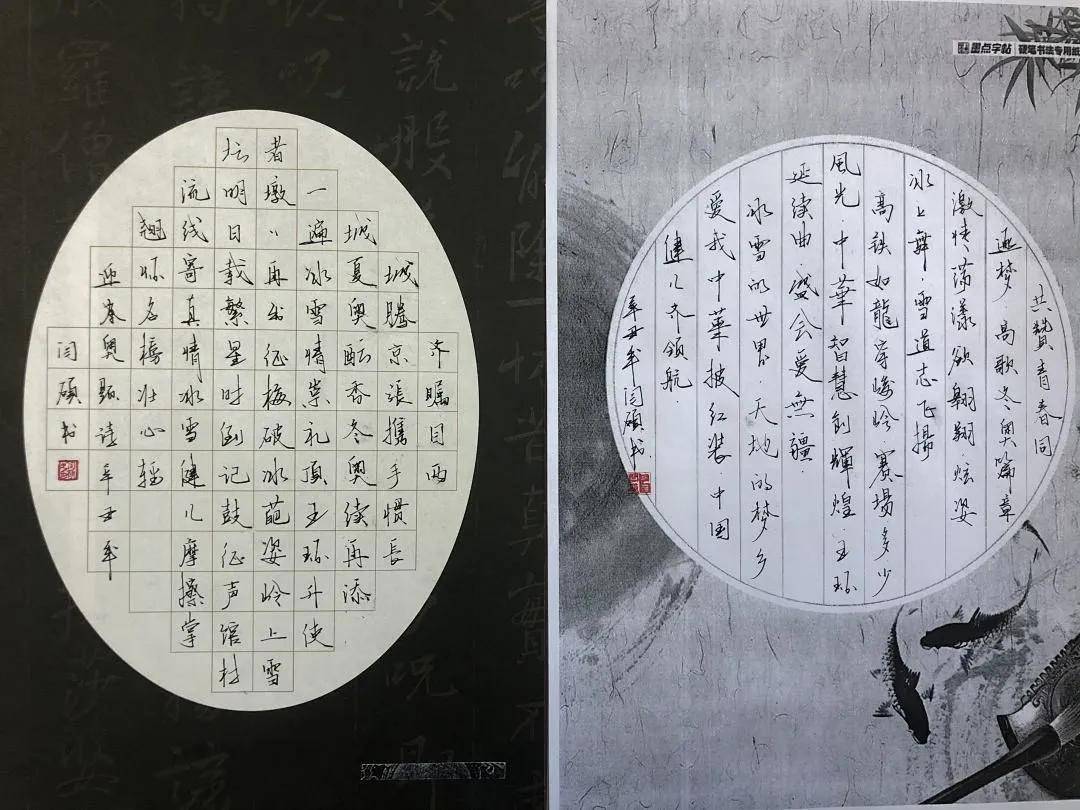 齐瞩目两
城腾京張携手惯长
城夏奥酝香冬奥续再添
一遍冰雪情崇礼顶五环升使
者墩再出征梅破冰葩姿岭上雪
坛明日载繁星时倒记鼓征声
流线寄真情冰雪健儿摩擦掌
翘怀名榜壮心轻
迎奥辛丑年
闫硕书
墨点字帖 硬笔书法专用纸
共赞青春同
逐梦 高歌冬奥篇章
激情荡漾欲翱翔·炫姿
冰上舞·雪道志飞揚
高铁如龍穿峻岭·賽場多少
風光·中華智慧創輝煌·五环
延续曲·盛会爱無疆
冰雪的世界·天地的梦乡
爱我中華披红装 中国
健儿齐领航·
辛丑年闫硕书